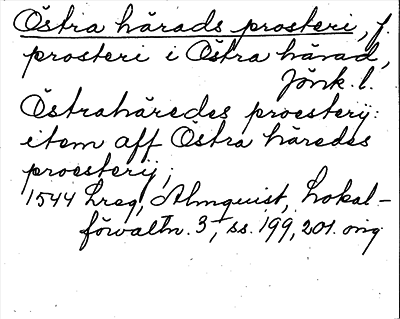 Östra härads prosteri, f.
prosteri i Östra härad,
Jönk. l.
Östrahäredes proesterij:
item aff Östra häredes
proesterij,
1544 Lreg, Almquist, Lokal-
förvaltn. 3, ss. 199, 201. orig.